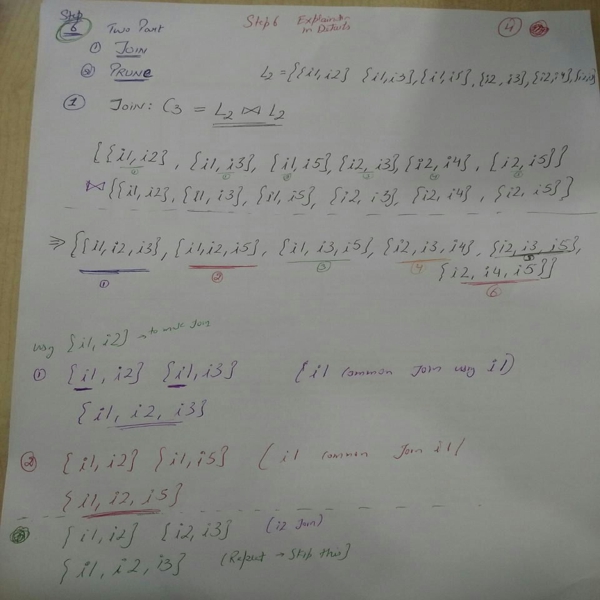 Step 6 Two Part
Step 6 Explanation in Details
4
① JOIN
② PRUNE
L2 = {{i1, i2} {i1, i3}, {i1, i5}, {i2, i3}, {i2, i4}, {i2, i5}
① JOIN: C3 = L2 ⋈ L2
[{i1, i2}, {i1, i3}, {i1, i5}, {i2, i3}, {i2, i4}, {i2, i5}}
⋈ {{i1, i2}, {i1, i3}, {i1, i5}, {i2, i3}, {i2, i4}, {i2, i5}}
⇒ {{i1, i2, i3}, {i1, i2, i5}, {i1, i3, i5}, {i2, i3, i4}, {i2, i3, i5},
① ② ③ 4 5
{i2, i4, i5}}
6
Using {i1, i2} → to make Join
① {i1, i2} {i1, i3} {i1 common Join using i1)
{i1, i2, i3}
② {i1, i2} {i1, i5} (i1 common Join i1)
{i1, i2, i5}
{i1, i2} {i2, i3} (i2 Join)
{i1, i2, i3} (Repeat → Skip this)